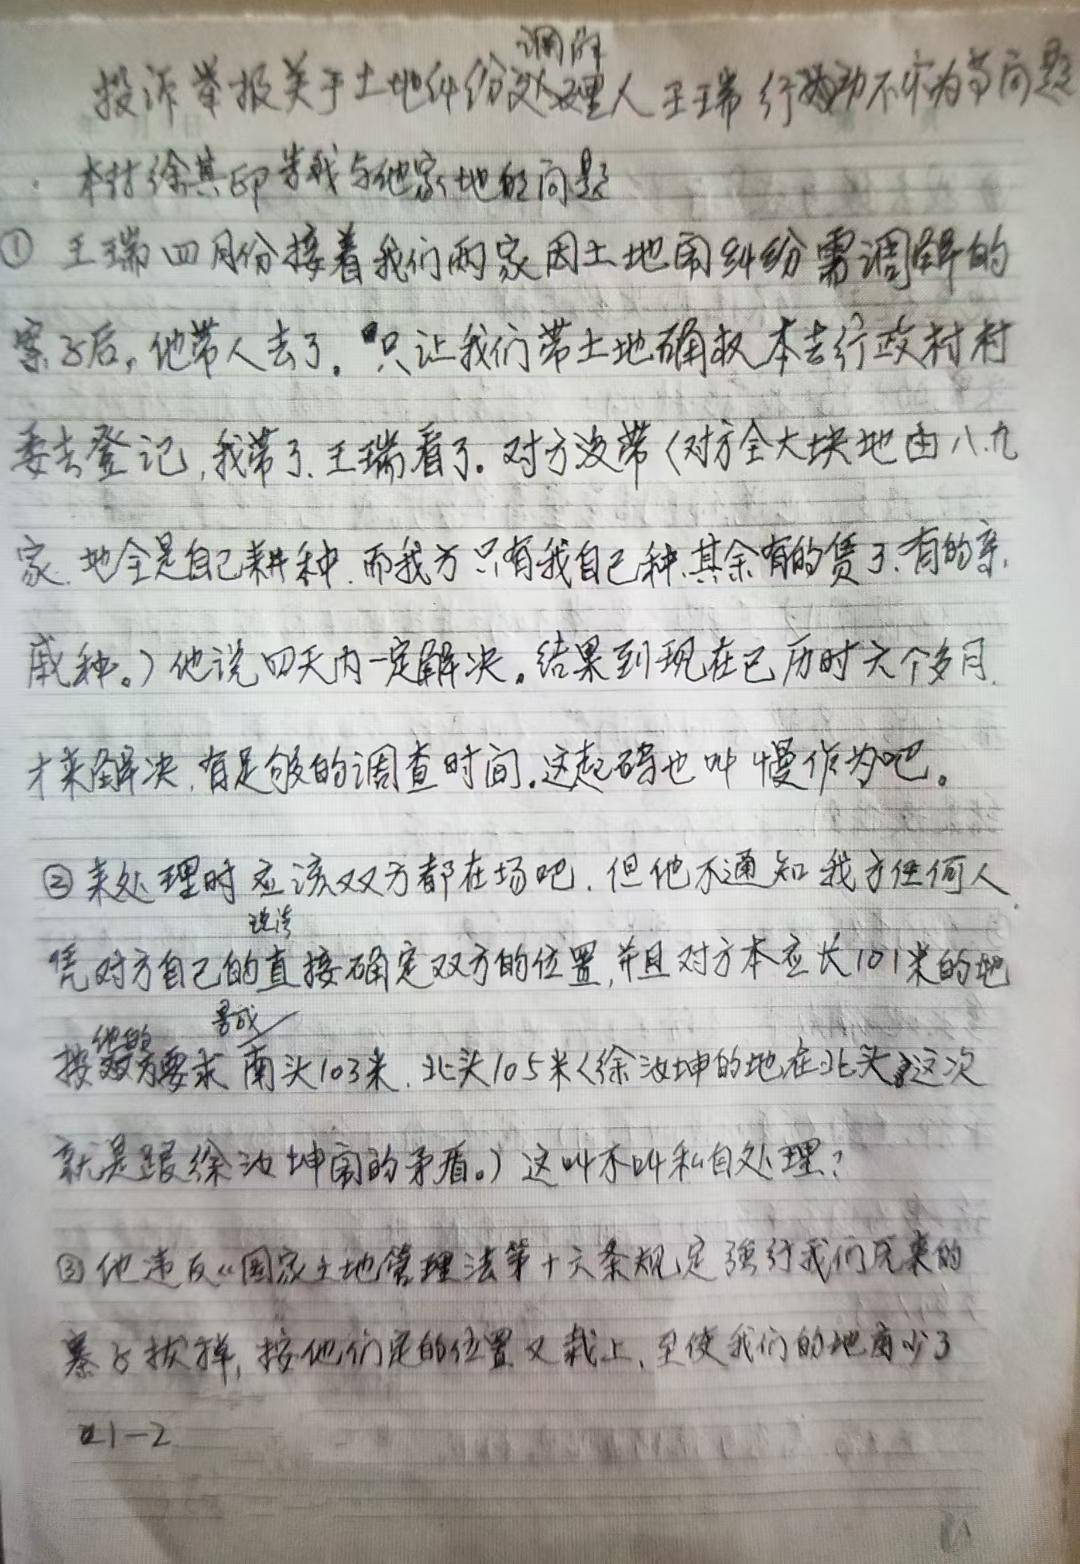 调解
投诉举报关于土地纠纷处理人王瑞行动不作为等问题
本村徐其印告我与他家地的问题
① 王瑞四月份接着我们两家因土地闹纠纷需调解的
案子后,他带人去了。只让我们带土地确权本去行政村村
委去登记,我带了、王瑞看了。对方没带(对方全大块地由八.九
家.地全是自己耕种.而我方只有我自己种、其余有的赁了、有的亲.
戚种。)他说四天内一定解决。结果到现在已历时六个多月.
才来解决,有足够的调查时间。这起码也叫慢作为吧。
② 来处理时应该双方都在场吧.但他不通知我方任何人.
说法
凭对方自己的直接确定双方的位置,并且对方本应长101米的地
他的 量成
按要求南头103米.北头105米(徐汝坤的地在北头,这次
就是跟徐汝坤闹的矛盾。)这叫不叫私自处理?
③ 他违反《国家土地管理法第十六条规定强行我们原来的
橛子拔掉,按他们定的位置又栽上,至使我们的地南少了
1-2